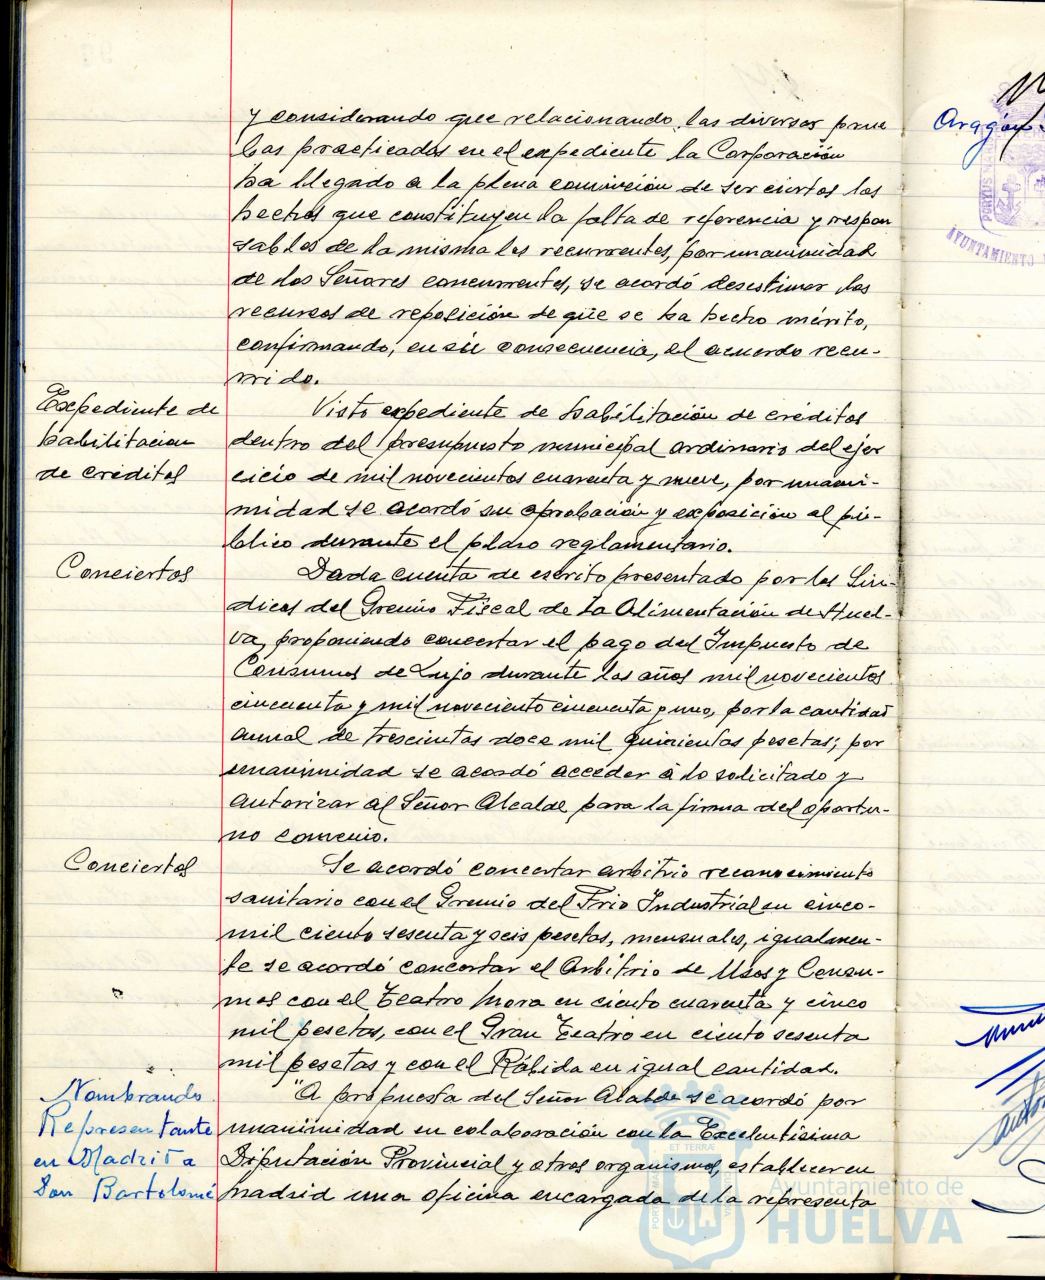 y considerando que relacionando las diversas prue
bas practicadas en el expediente la Corporación
ha llegado a la plena convicción de ser ciertos los
hechos que constituyen la falta de referencia y respon
sables de la misma los recurrentes, por unanimidad
de los Señores concurrentes, se acordó desestimar los
recursos de reposición de que se ha hecho mérito,
confirmando, en su consecuencia, el acuerdo recu-
rrido.
Expediente de
habilitacion
de créditos
Visto expediente de habilitación de créditos
dentro del presupuesto municipal ordinario del ejer
cicio de mil novecientos cuarenta y nueve, por unani-
midad se acordó su aprobación y exposición al pú-
blico durante el plazo reglamentario.
Conciertos
Dada cuenta de escrito presentado por los Sin-
dicos del Gremio Fiscal de la Alimentación de Huel-
va, proponiendo concertar el pago del Impuesto de
Consumos de Lujo durante los años mil novecientos
cincuenta y mil noveciento cincuenta y uno, por la cantidad
anual de trescientas doce mil quinientas pesetas; por
unanimidad se acordó acceder a lo solicitado y
autorizar al Señor Alcalde para la firma del oportu-
no convenio.
Conciertos
Se acordó concertar arbitrio reconocimiento
sanitario con el Gremio del Frio Industrial en cinco-
mil ciento sesenta y seis pesetas, mensuales, igualmen-
te se acordó concertar el Arbitrio de Usos y Consu-
mos con el Teatro Mora en ciento cuarenta y cinco
mil pesetas, con el Gran Teatro en ciento sesenta
mil pesetas y con el Rábida en igual cantidad.
Nombrando
Representante
en Madrid a
Don Bartolomé
"A propuesta del Señor Alcalde se acordó por
unanimidad en colaboración con la Excelentísima
Diputación Provincial y otros organismos, establecer en
Madrid una oficina encargada de la representa
Aragón
AYUNTAMIENTO
Ayuntamiento de
HUELVA